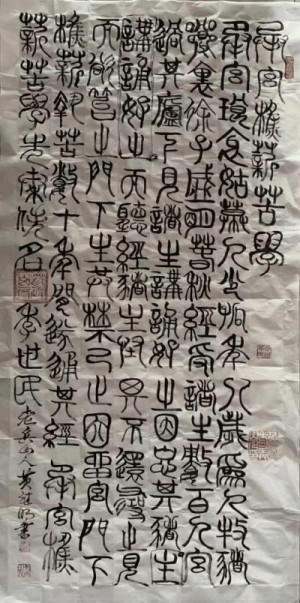 承宮樵薪苦學
承宮琅邪姑幕人少孤年八歲為人牧豬
鄉里徐子盛明春秋經授諸生數百人宮
過其廬下見諸生講誦好之因忘其豬
講誦好之而聽經豬主怪其不還尋之見
而欲笞之門下生共禁乃止因留宮門下
樵薪執苦數十年間遂通其經 承宮樵
薪苦學 名 李世民 老兵山人黃